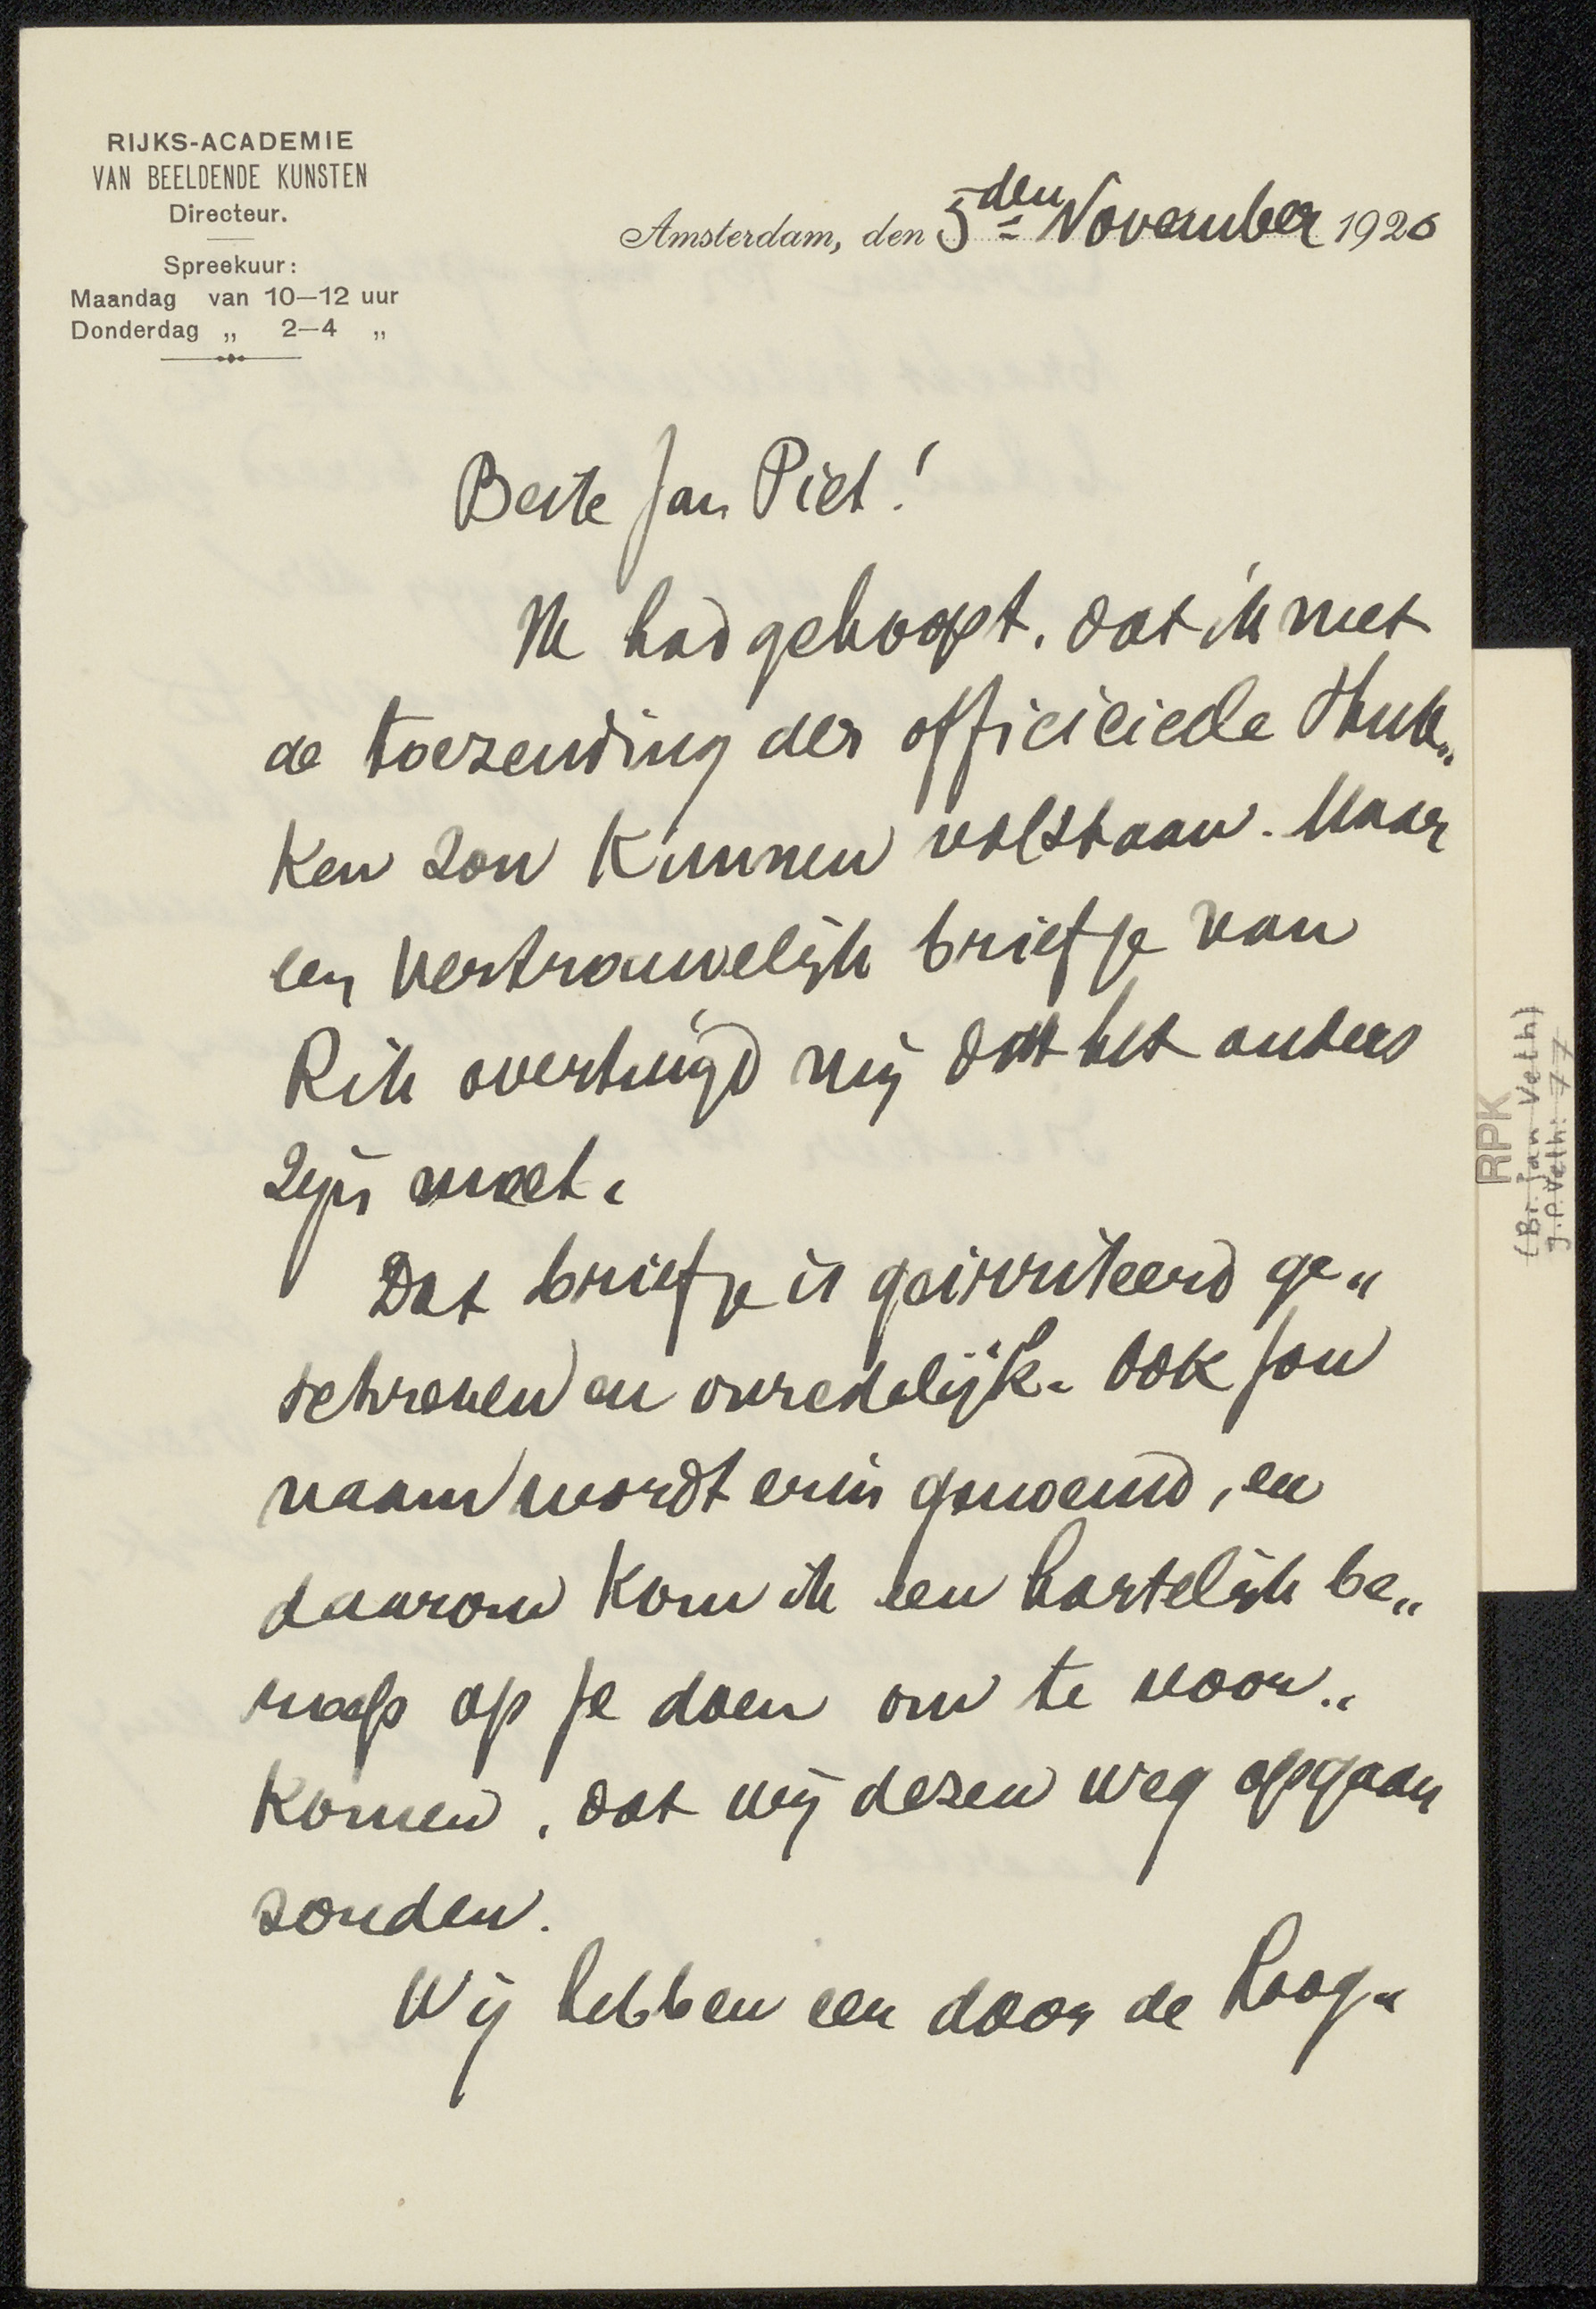 RIJKS-ACADEMIE
VAN BEELDENDE KUNSTEN
Directeur.
Spreekuur:
Maandag van 10—12 uur
Donderdag „ 2—4 „
Amsterdam, den 5den November 1926
Beste Jan Piet!
Ik had gehoopt, dat ik met
de toezending der officicieele stuk„
ken zou kunnen volstaan. Maar
een vertrouwelijk briefje van
Rik overtuigd mij dat het anders
zijn moet.
Dat briefje is geirriteerd ge„
schreven en onredelijk. Ook jou
naam wordt erin genoemd, en
daarom kom ik een hartelijk be„
roep op je doen om te voor„
komen, dat wij dezen weg opgaan
zouden.
Wij hebben een door de Hoog„
RPK
(Br. Jan Veth)
J.P. Veth: 77